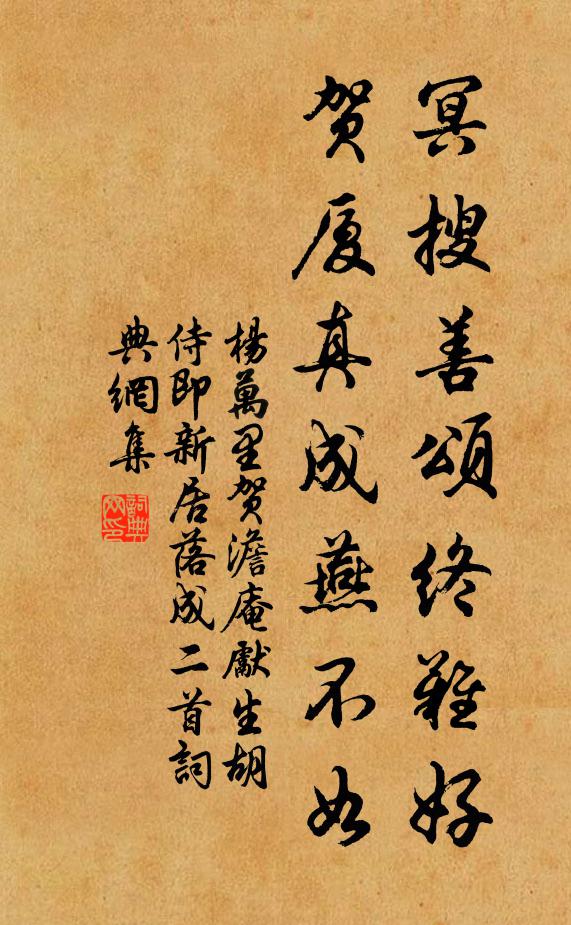 冥搜善頌終難好
贺厦真成燕不如
楊萬里贺澹庵獻生胡
侍即新居落成二首詞
典網集
詞典網印